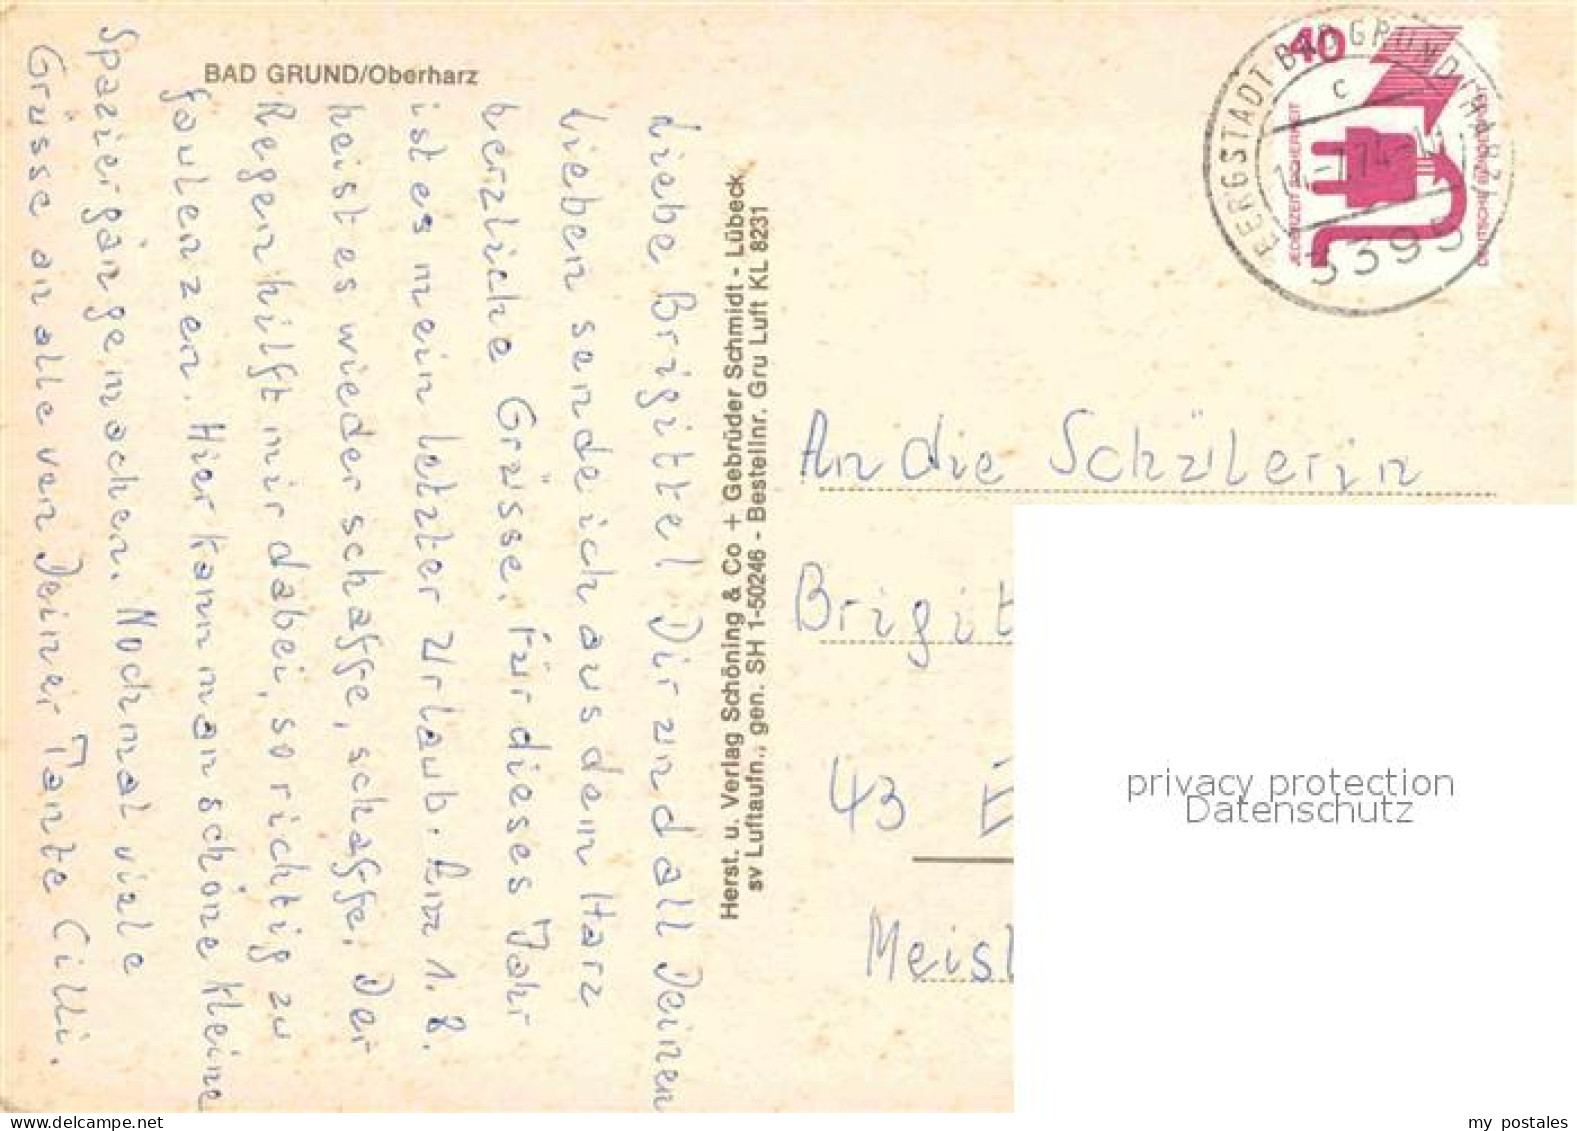 BAD GRUND/Oberharz
Liebe Brigitte! Dir und all Deinen
Lieben sende ich aus dem Harz
herzliche Grüsse. Für dieses Jahr
ist es mein letzter Urlaub. Am 1. 8.
heist es wieder schaffe, schaffe. Der
Regen hilft mir dabei, so richtig zu
faulenzen. Hier kann man schöne kleine
Spaziergänge machen. Nochmal viele
Grüsse an alle von Deiner Tante Cilli.
Herst. u. Verlag Schöning & Co + Gebrüder Schmidt - Lübeck
sv Luftaufn., gen. SH 1-50246 - Bestellnr. Gru Luft KL 8231
40
JEDERZEIT SICHERHEIT
DEUTSCHE BUNDESPOST
BERGSTADT BAD GRUND (HARZ)
c
3395
An die Schülerin
Brigit
43 E
Meis
privacy protection
Datenschutz
delcampe.net
my postales